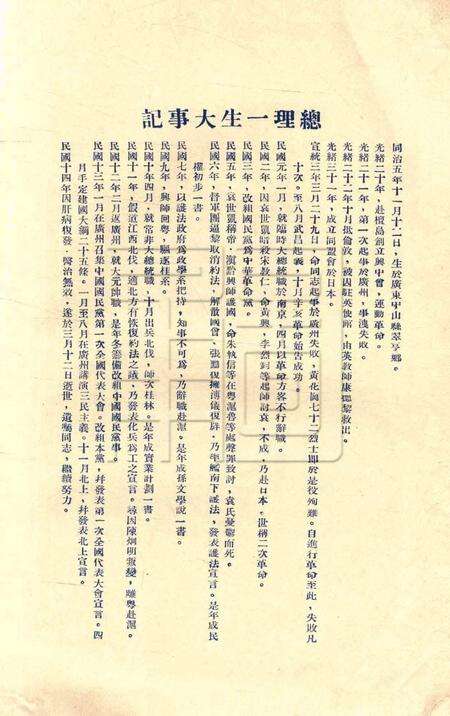 總理一生大事記
同治五年十一月十二日，生於廣東中山縣翠亨鄉。
光緒二十年，赴檀島創立興中會，運動革命。
光緒二十一年，第一次起事於廣州，事洩失敗。
光緒二十二年十月抵倫敦，被囚駐英使館，由英教師康德黎救出。
光緒三十一年，成立同盟會於日本。
宣統三年三月二十九日，命同志起事於廣州失敗，黃花崗七十二烈士即於是役殉難。自進行革命至此，失敗凡
十次。至八月武昌起義，十月辛亥革命始告成功。
民國元年一月，就臨時大總統職於南京，四月以革命方客不行辭職。
民國二年，因袁世凱暗殺宋教仁，命黃興，李烈鈞等起師討袁，不成，乃赴日本。世稱二次革命。
民國三年，改組國民黨爲中華革命黨。
民國五年，袁世凱稱帝，滇黔興師護國，命朱執信等在粵滬魯等處聲罪致討，袁氏憂鬱而死。
民國六年，督軍團逼黎取消約法，解散國會，張勳復擁溥儀復辟，乃率艦南下護法，發表護法宣言。是年成民
權初步一書。
民國七年，以護法政府爲政學系把持，知事不可爲，乃辭職赴滬。是年成孫文學說一書。
民國九年，興師回粵，驅逐桂系。
民國十年四月，就常非大總統職，十月出兵北伐，師次桂林。是年成實業計劃一書。
民國十一年，假道江西北伐，適北方有恢復約法之議，乃發表化兵爲工之宣言。尋因陳炯明叛變，離粵赴滬。
民國十二年二月返廣州，就大元帥職，是年冬籌備改組中國國民黨事。
民國十三年一月在廣州召集中國國民黨第一次全國代表大會。改組本黨，幷發表第一次全國代表大會宣言。四
月手定建國大綱二十五條。一月至八月在廣州講演三民主義。十一月北上，幷發表北上宣言。
民國十四年因肝病復發，醫治無效，遂於三月十二日逝世，遺囑同志，繼續努力。